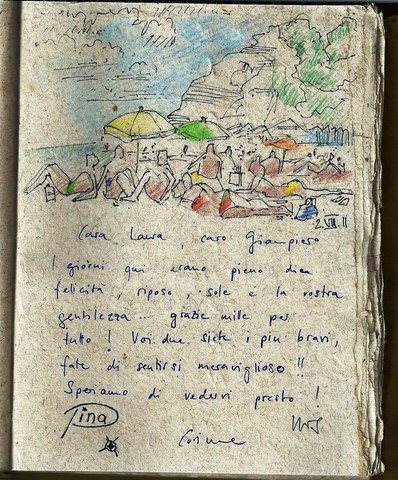 2.VIII.11
Cara Laura, caro Giampiero
I giorni qui erano pieno di
felicità, riposo, sole e la vostra
gentilezza ... grazie mille per
tutto! Voi due siete i più bravi,
fate di sentirsi meraviglioso!!
Speriamo di vedervi presto!
Pina
Corinne